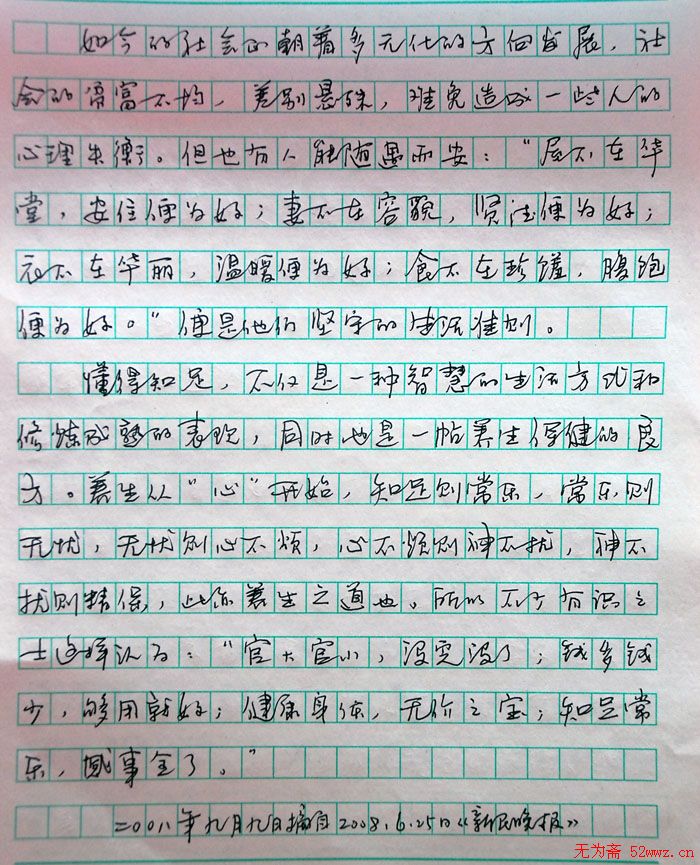 如今的社会正朝着多元化的方向发展，社
会的贫富不均，差别悬殊，难免造成一些人的
心理失衡。但也有人能随遇而安：“居不在华
堂，安住便为好；妻不在容貌，贤法便为好；
衣不在华丽，温暖便为好；食不在珍馐，腹饱
便为好。”便是他们坚守的生活准则。
懂得知足，不仅是一种智慧的生活方式和
修炼成熟的表现，同时也是一帖养生保健的良
方。养生从“心”开始，知足则常乐，常乐则
无忧，无忧则心不烦，心不烦则神不扰，神不
扰则精保，此亦养生之道也。所以不少有识之
士这样认为：“官大官小，没完没了；钱多钱
少，够用就好；健康身体，无价之宝；知足常
乐，啥事全了。”
二00八年九月九日摘自2008.6.25日《新民晚报》
无为斋 52wwz.cn